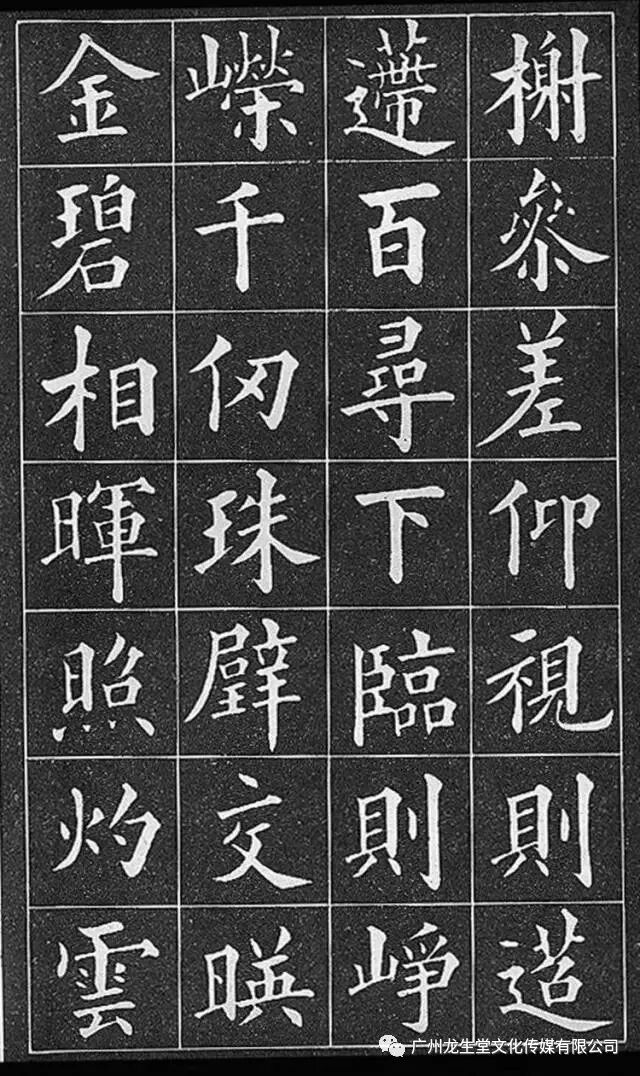 榭參差仰視則迢
遰百尋下臨則崢
嶸千仞珠壁交暎
金碧相暉照灼雲
广州龙生堂文化传媒有限公司